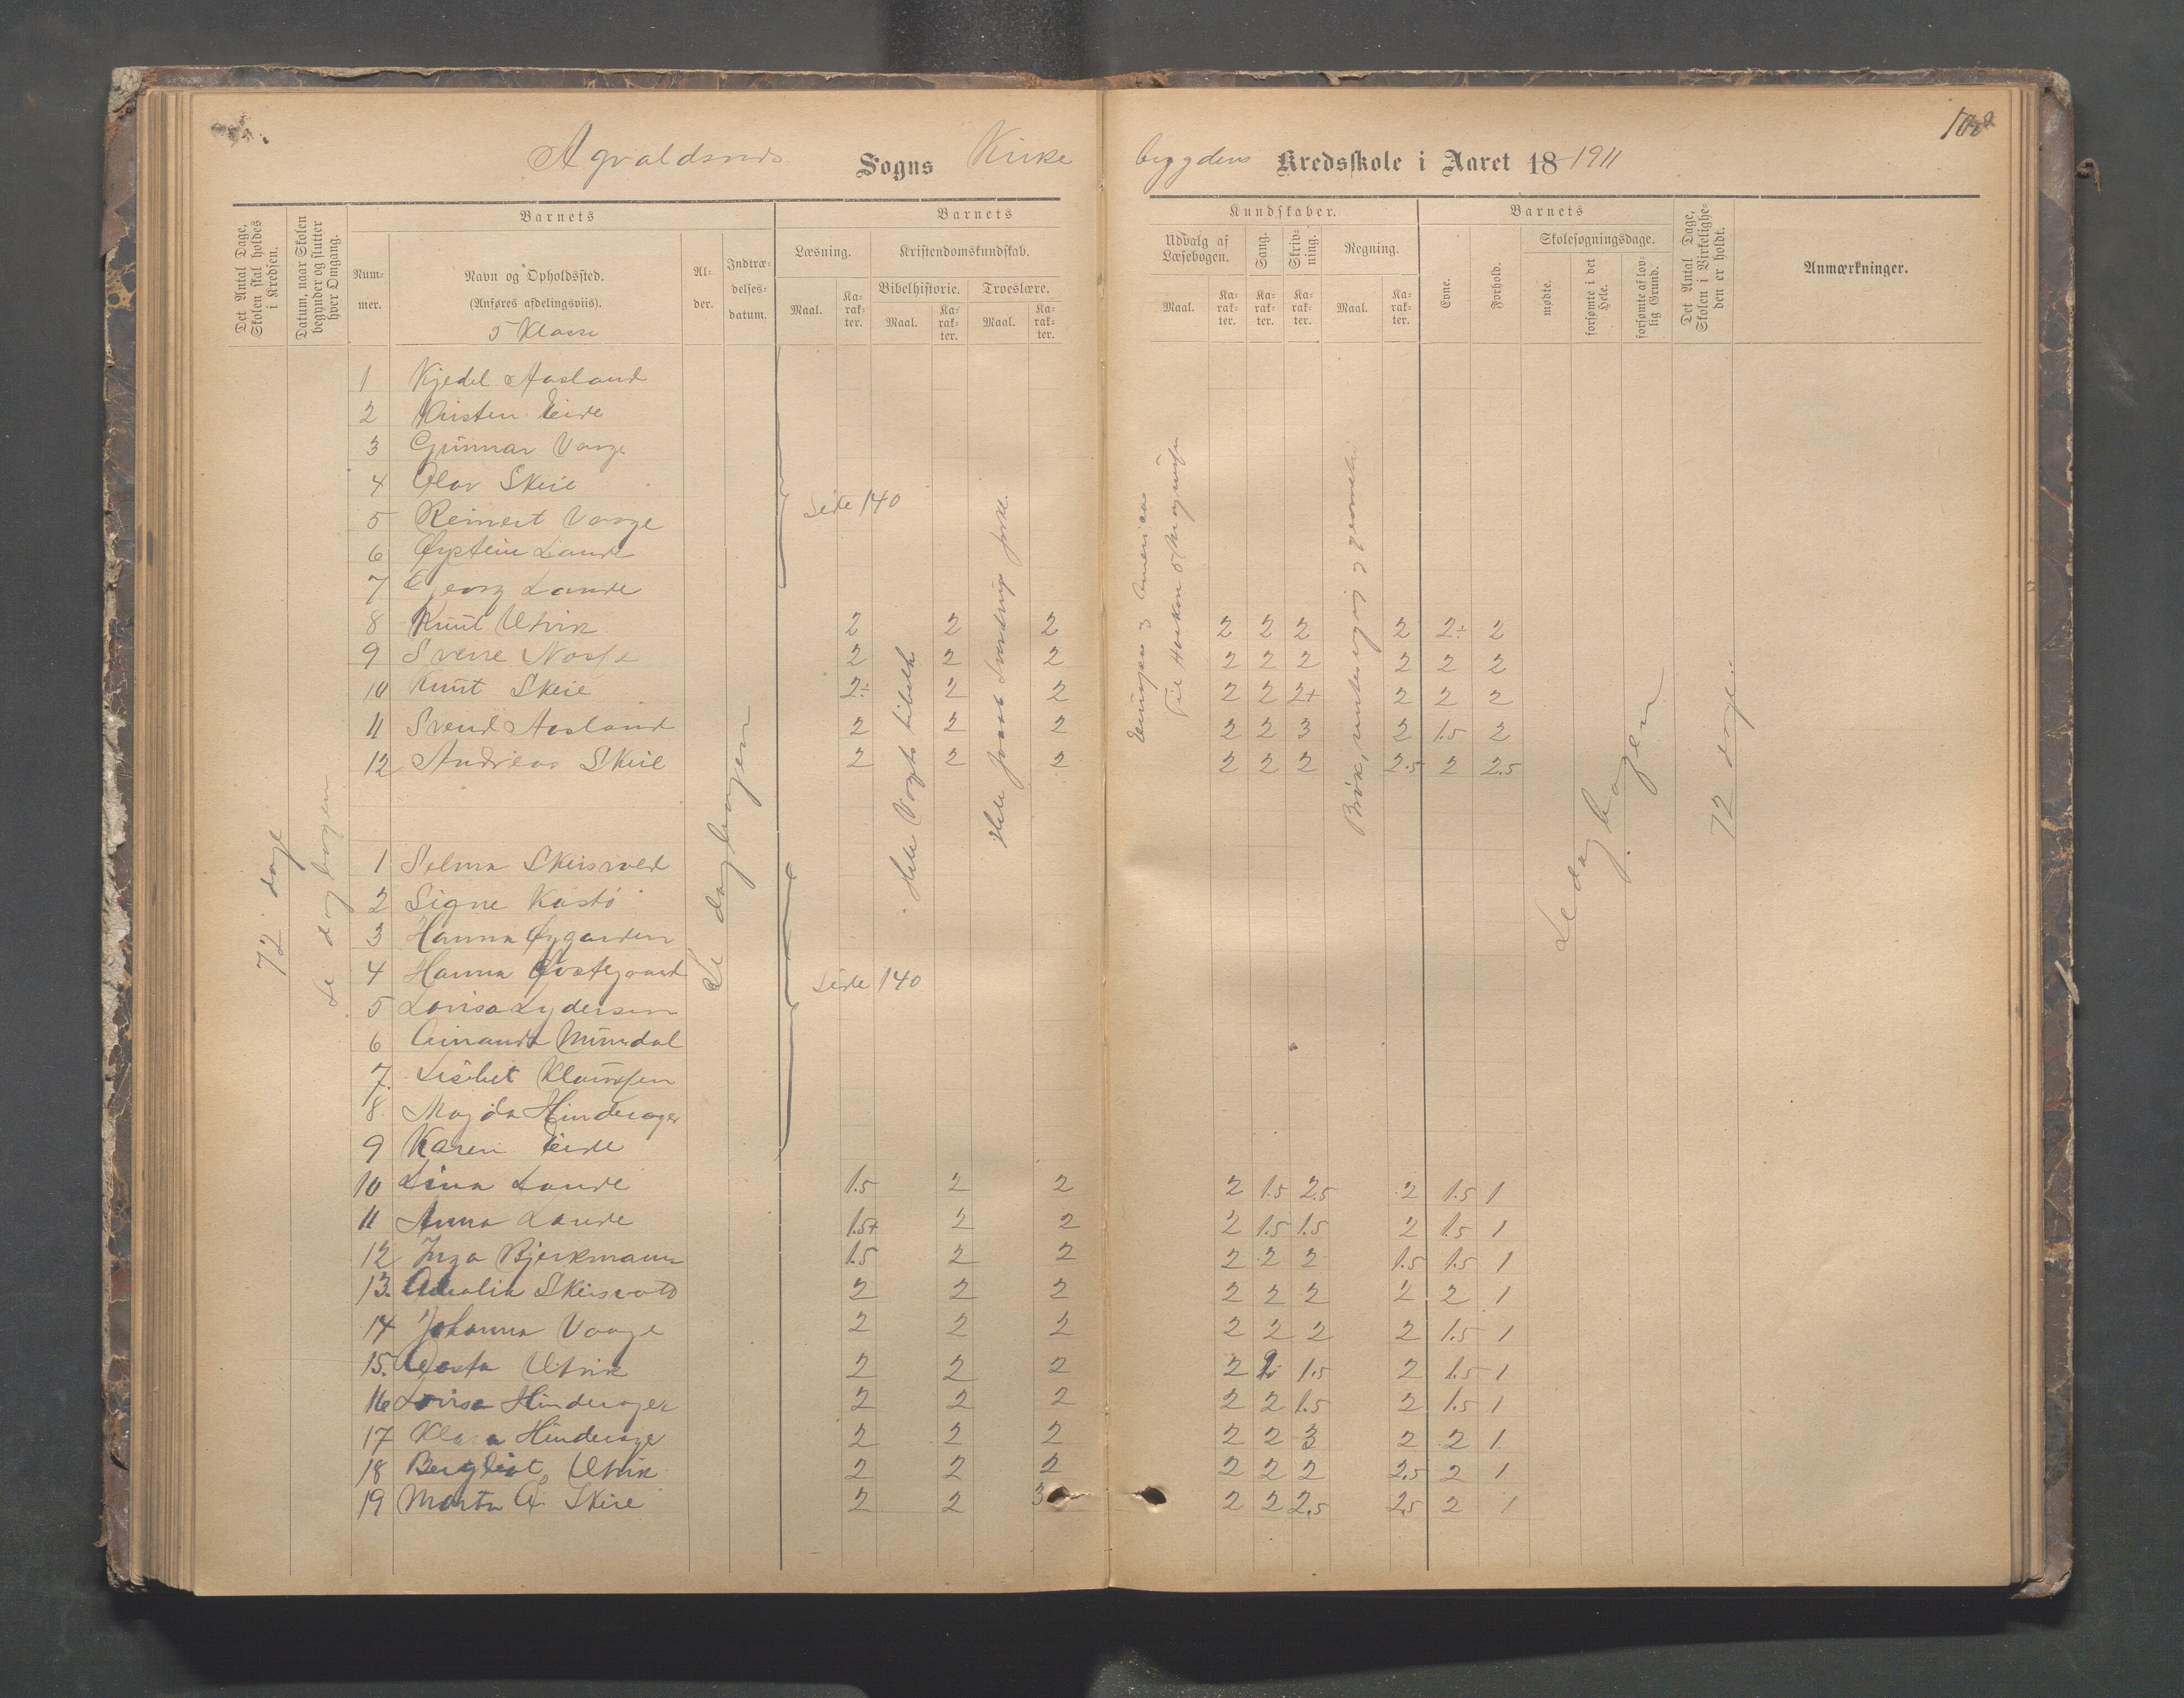 Agvaldsnes Sogns Kirke
bygdens Kredsskole i Aaret 18 1911
Det Antal Dage, Skolen skal holdes i Kredsen.
Datum, naar Skolen begynder og slutter hver Omgang.
Barnets
Nummer.
Navn og Opholdssted.
(Anføres afdelingsviis).
5 Klasse
Alder.
Indtrædelsesdatum.
Barnets
Læsning.
Kristendomskundskab.
Bibelhistorie.
Troeslære.
Maal.
Karakter.
Maal.
Karakter.
Maal.
Karakter.
Kundskaber.
Udvalg af Læsebogen.
Sang.
Skrivning.
Regning.
Maal.
Karakter.
Karakter.
Karakter.
Maal.
Karakter.
Barnets
Evne.
Forhold.
Skolesøgningsdage.
mødte.
forsømte i det Hele.
forsømte af lovlig Grund.
Det Antal Dage, Skolen i Virkeligheden er holdt.
Anmærkninger.
1 Kjedel Aasland
2 Kristen Eide
3 Gunnar Vaage
4 Olav Skeie
5 Reinert Vaage
6 Øystein Lande
7 Georg Lande
Side 140
8 Knut Utvik 2 2 2 2 2 2 2 2÷ 2
9 Sverre 2 2 2 2 2 2 2 2 2
10 Knut Skeie 2÷ 2 2 2 2 2+ 2 2 2
11 Svend Aasland 2 2 2 2 2 3 2 1.5 2
12 Andreas Skeie 2 2 2 2 2 2 2.5 2 2.5
1 Selma Skeisvold
2 Signe Kastø
3 Hanna Øygarden
4 Hanna Østegaard
5 Lovisa Lydersen
6 Munndal
7. Lisibet Klausen
8. Magda Hinderager
9 Karen Eide
Side 140
10 Lina Lande 1.5 2 2 2 1.5 2.5 2 1.5 1
11 Anna Lande 1.5+ 2 2 2 1.5 1.5 2 1.5 1
12 Inga Bjerkmann 1.5 2 2 2 2 2 1.5 1.5 1
13. Amalia Skeisvold 2 2 2 2 2 2 2 2 1
14 Johanna Vaage 2 2 2 2 2 2 2 1.5 1
15. Aasta Utvik 2 2 2 2 1.5 2 1.5 1
16 Lovisa Hinderager 2 2 2 2 2 1.5 2 1.5 1
17 Klara Hinderage 2 2 2 2 2 3 2 2 1
18 Bergliot Utvik 2 2 2 2 2 2 2.5 2 1
19 Marta A. Skeie 2 2 3 2 2 2.5 2.5 2 1
72 dage
Se dagbogen
Se dagbogen
Hele Vogts bibelh
Hele
Europa og Amerika
Til Haakon
Brøk,
Se dagbogen
72 dage.